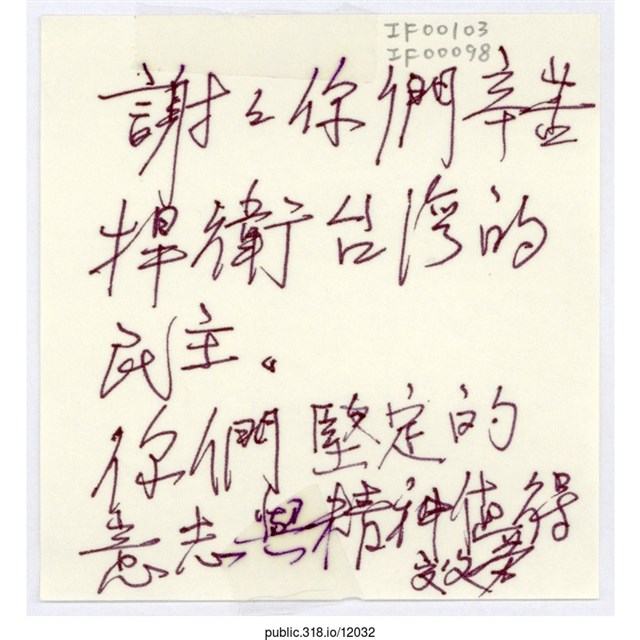 IF00103
IF00098
謝々你們辛苦
捍衛台灣的
民主。
你們堅定的
意志與精神值得
public.318.io/12032